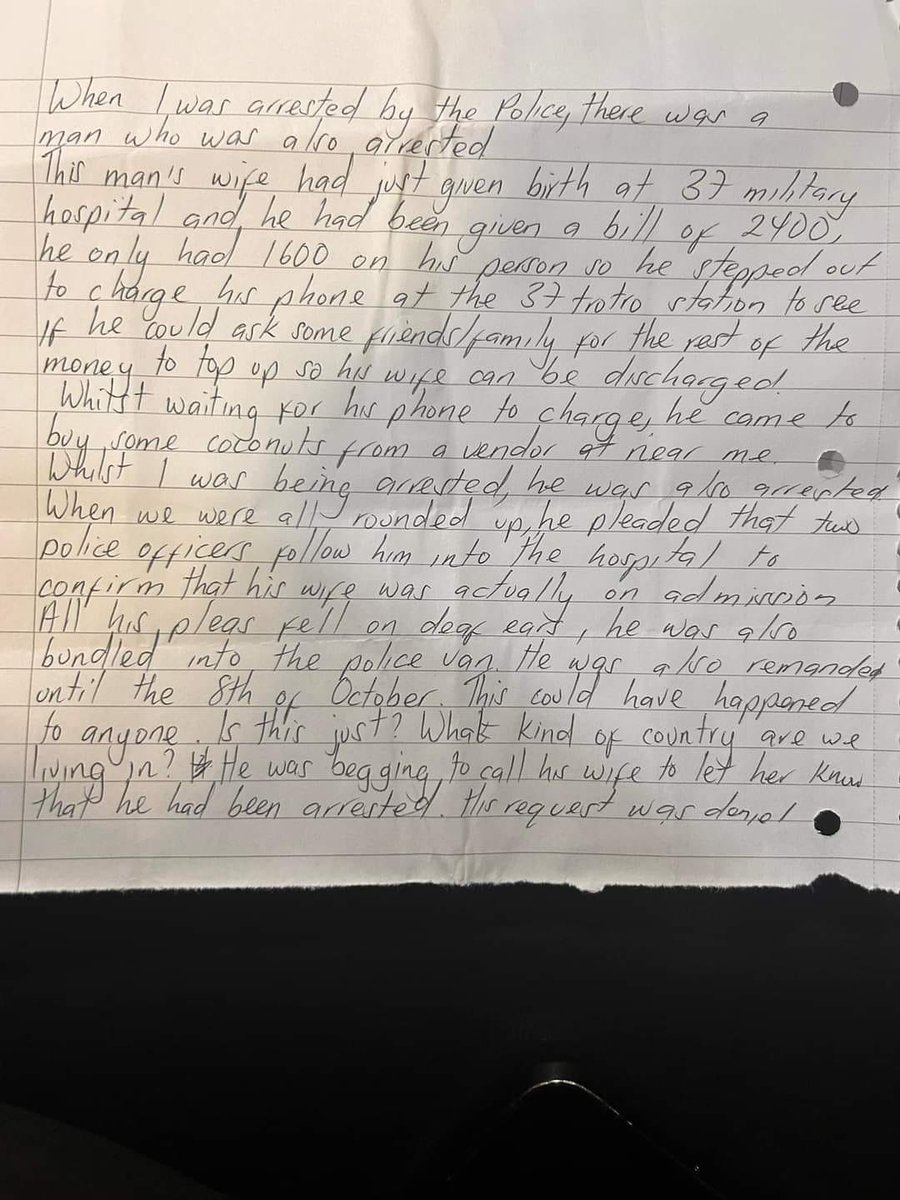 When I was arrested by the Police, there was a
man who was also arrested
This man's wife had just given birth at 37 military
hospital and he had been given a bill of 2400,
he only had 1600 on his person so he stepped out
to charge his phone at the 37 trotro station to see
If he could ask some friends/family for the rest of the
money to top up so his wife can be discharged.
Whitst waiting for his phone to charge, he came to
buy some coconuts from a vendor at near me.
Whilst I was being arrested, he was also arrested
When we were all rounded up, he pleaded that two
police officers follow him into the hospital to
confirm that his wife was actually on admission
All his pleas fell on deaf ears, he was also
bundled into the police van. He was also remanded
until the 8th of October. This could have happened
to anyone. Is this just? What kind of country are we
living in? He was begging to call his wife to let her know
that he had been arrested. His request was denied